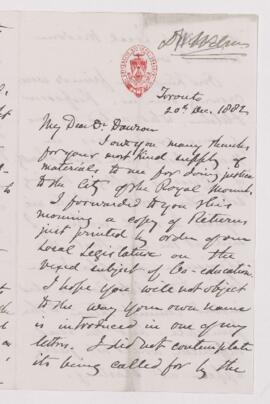 Toronto
20th Dec. 1882
My Dear Dr Dawson
I owe you many thanks
for your most kind supply of
materials to me for doing justice
to the City of the Royal Mount.
I forwarded to you this
morning a copy of Returns
just printed by order of our
Local Legislature on the
vexed subject of Co-education.
I hope you will not object
to the way your own name
is introduced in one of my
letters. I did not contemplate
its being called for by the